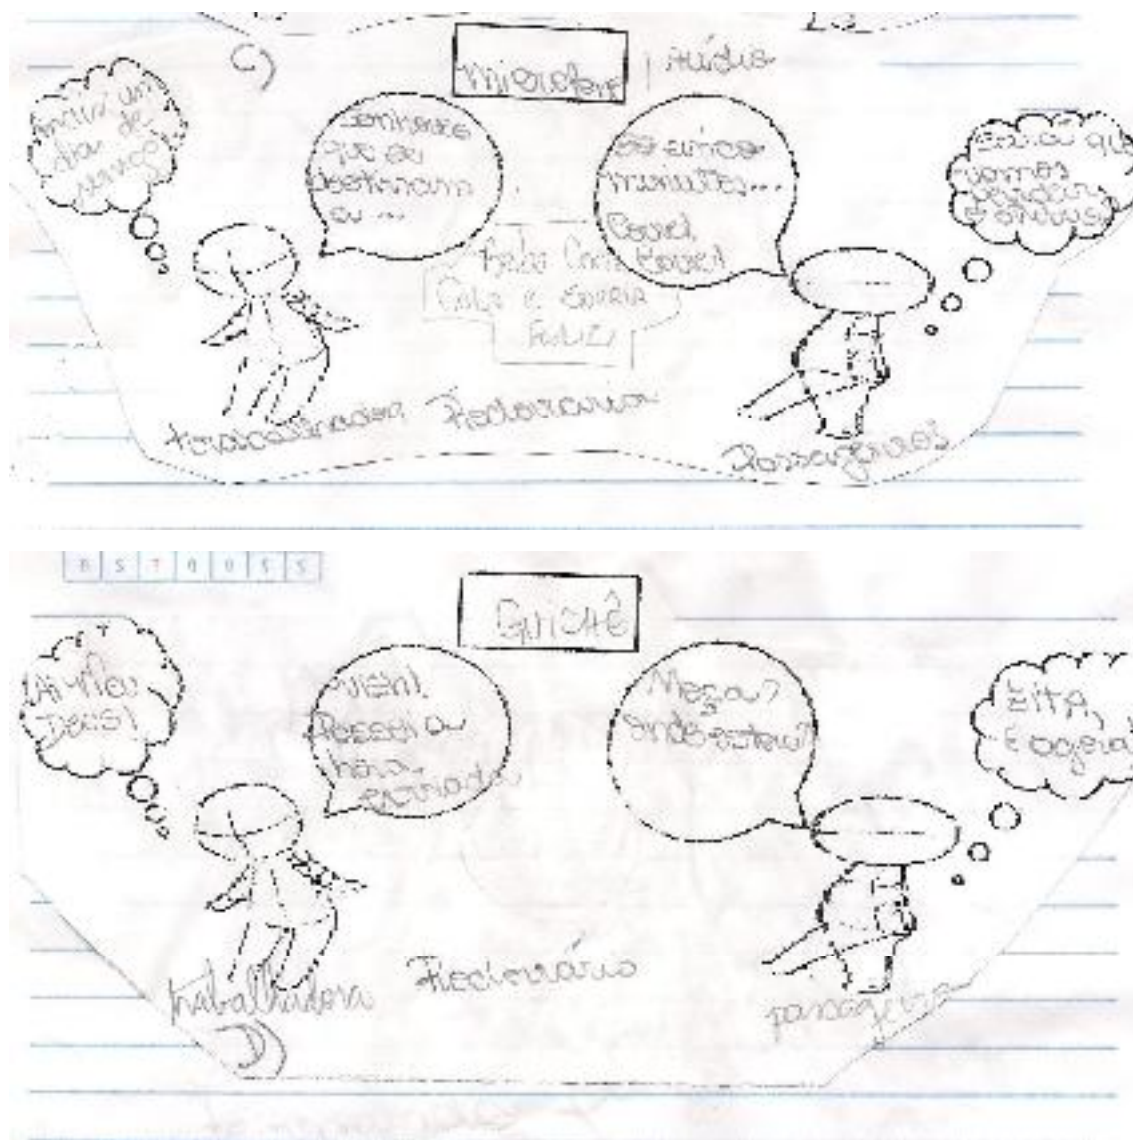 Microfone | Áudio
mais um
dia de
serviço
Senhores
que se
destinam
a...
Só cinco
minutos...
Corre!
Corre!
Será que
vamos
perder
o ônibus?
Bela
Cala e sorria
Feliz
trabalhador Rodoviária
Passageiros
GUICHÊ
Ai meu
Deus!
Vish!
Peguei a
hora
errada
Moça?
Onde estou?
Eita,
E agora!
trabalhadora Rodoviário
passageiro